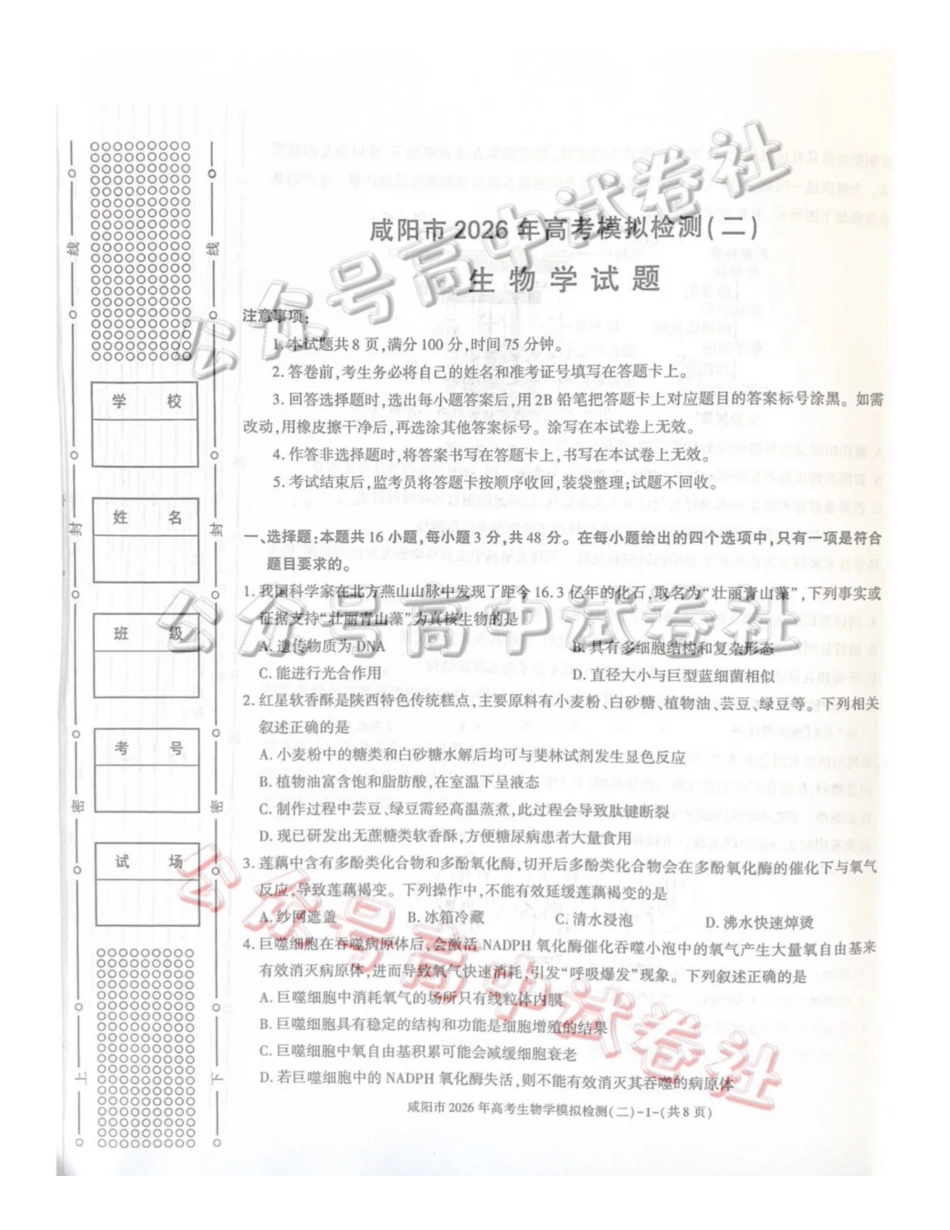 咸阳市2026年高考模拟检测(二)
生物学试题
注意事项:
1.本试题共8页,满分100分,时间75分钟。
2.答卷前,考生务必将自己的姓名和准考证号填写在答题卡上。
3.回答选择题时,选出每小题答案后,用2B铅笔把答题卡上对应题目的答案标号涂黑。如需
改动,用橡皮擦干净后,再选涂其他答案标号。涂写在本试卷上无效。
4.作答非选择题时,将答案书写在答题卡上,书写在本试卷上无效。
5.考试结束后,监考员将答题卡按顺序收回,装袋整理;试题不回收。
一、选择题:本题共16小题,每小题3分,共48分。在每小题给出的四个选项中,只有一项是符合
题目要求的。
1.我国科学家在北方燕山山脉中发现了距今16.3亿年的化石,取名为“壮丽青山藻”,下列事实或
证据支持“壮丽青山藻”为真核生物的是
A.遗传物质为DNA
B.具有多细胞结构和复杂形态
C.能进行光合作用
D.直径大小与巨型蓝细菌相似
2.红星软香酥是陕西特色传统糕点,主要原料有小麦粉、白砂糖、植物油、芸豆、绿豆等。下列相关
叙述正确的是
A.小麦粉中的糖类和白砂糖水解后均可与斐林试剂发生显色反应
B.植物油富含饱和脂肪酸,在室温下呈液态
C.制作过程中芸豆、绿豆需经高温蒸煮,此过程会导致肽键断裂
D.现已研发出无蔗糖类软香酥,方便糖尿病患者大量食用
3.莲藕中含有多酚类化合物和多酚氧化酶,切开后多酚类化合物会在多酚氧化酶的催化下与氧气
反应,导致莲藕褐变。下列操作中,不能有效延缓莲藕褐变的是
A.纱网遮盖 B.冰箱冷藏 C.清水浸泡 D.沸水快速焯烫
4.巨噬细胞在吞噬病原体后,会激活NADPH氧化酶催化吞噬小泡中的氧气产生大量氧自由基来
有效消灭病原体,进而导致氧气快速消耗,引发“呼吸爆发”现象。下列叙述正确的是
A.巨噬细胞中消耗氧气的场所只有线粒体内膜
B.巨噬细胞具有稳定的结构和功能是细胞增殖的结果
C.巨噬细胞中氧自由基积累可能会减缓细胞衰老
D.若巨噬细胞中的NADPH氧化酶失活,则不能有效消灭其吞噬的病原体
咸阳市2026年高考生物学模拟检测(二)-1-(共8页)
学 校
姓 名
班 级
考 号
试 场
线
封
密
上
线
封
密
下
公众号高中试卷社
公众号高中试卷社
公众号高中试卷社